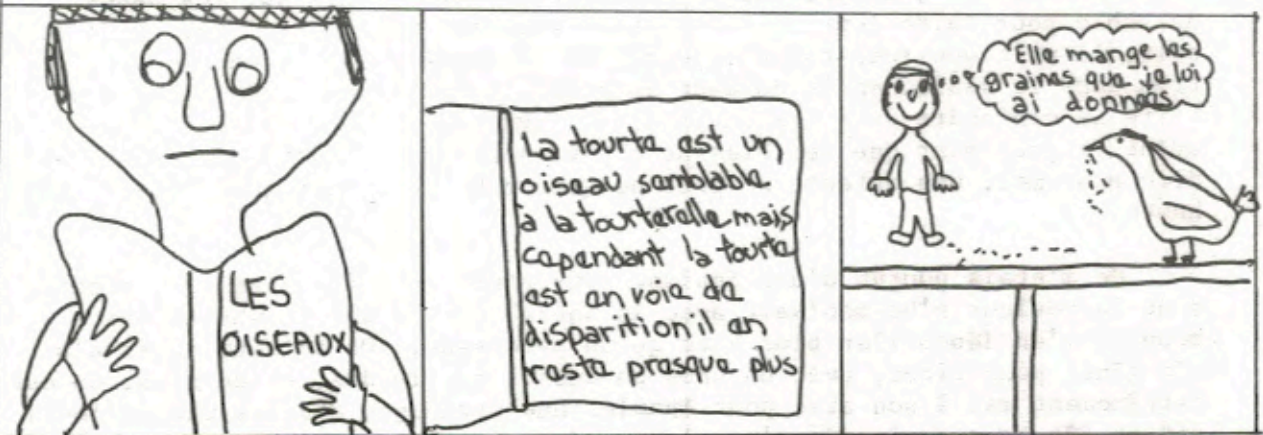 LES
OISEAUX
La tourte est un
oiseau semblable
à la tourterelle mais
cependant la tourte
est en voie de
disparition il en
reste presque plus
Elle mange les
graines que je lui
ai données